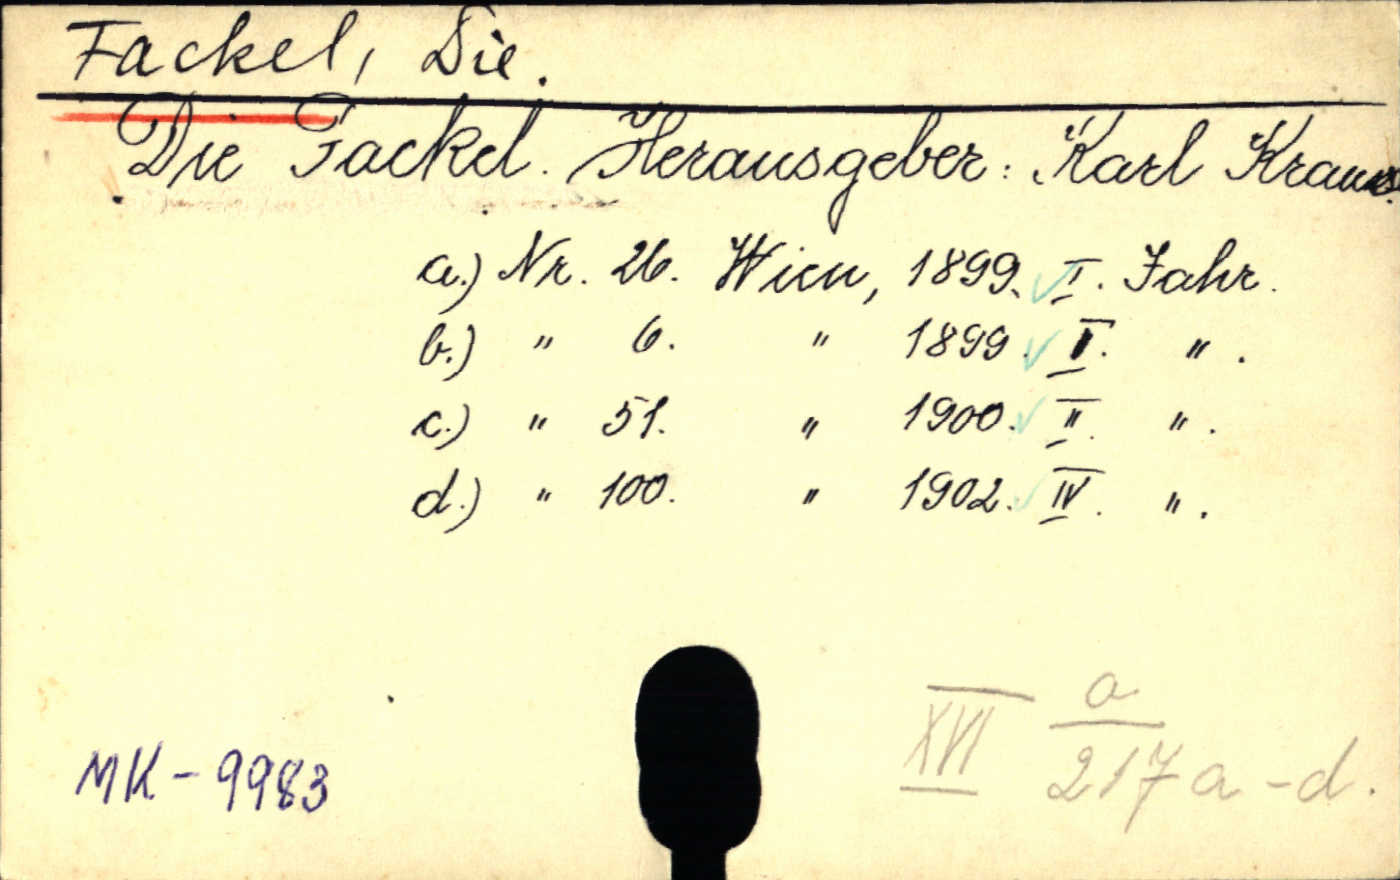 Fackel, Die.
Die Fackel. Herausgeber: Karl Kraus.
a.) Nr. 26. Wien, 1899. I. Jahr.
b.) " 6. " 1899. I. ".
c.) " 51. " 1900. II. ".
d.) " 100. " 1902. IV. ".
XVI a/217 a-d.
MK-9983